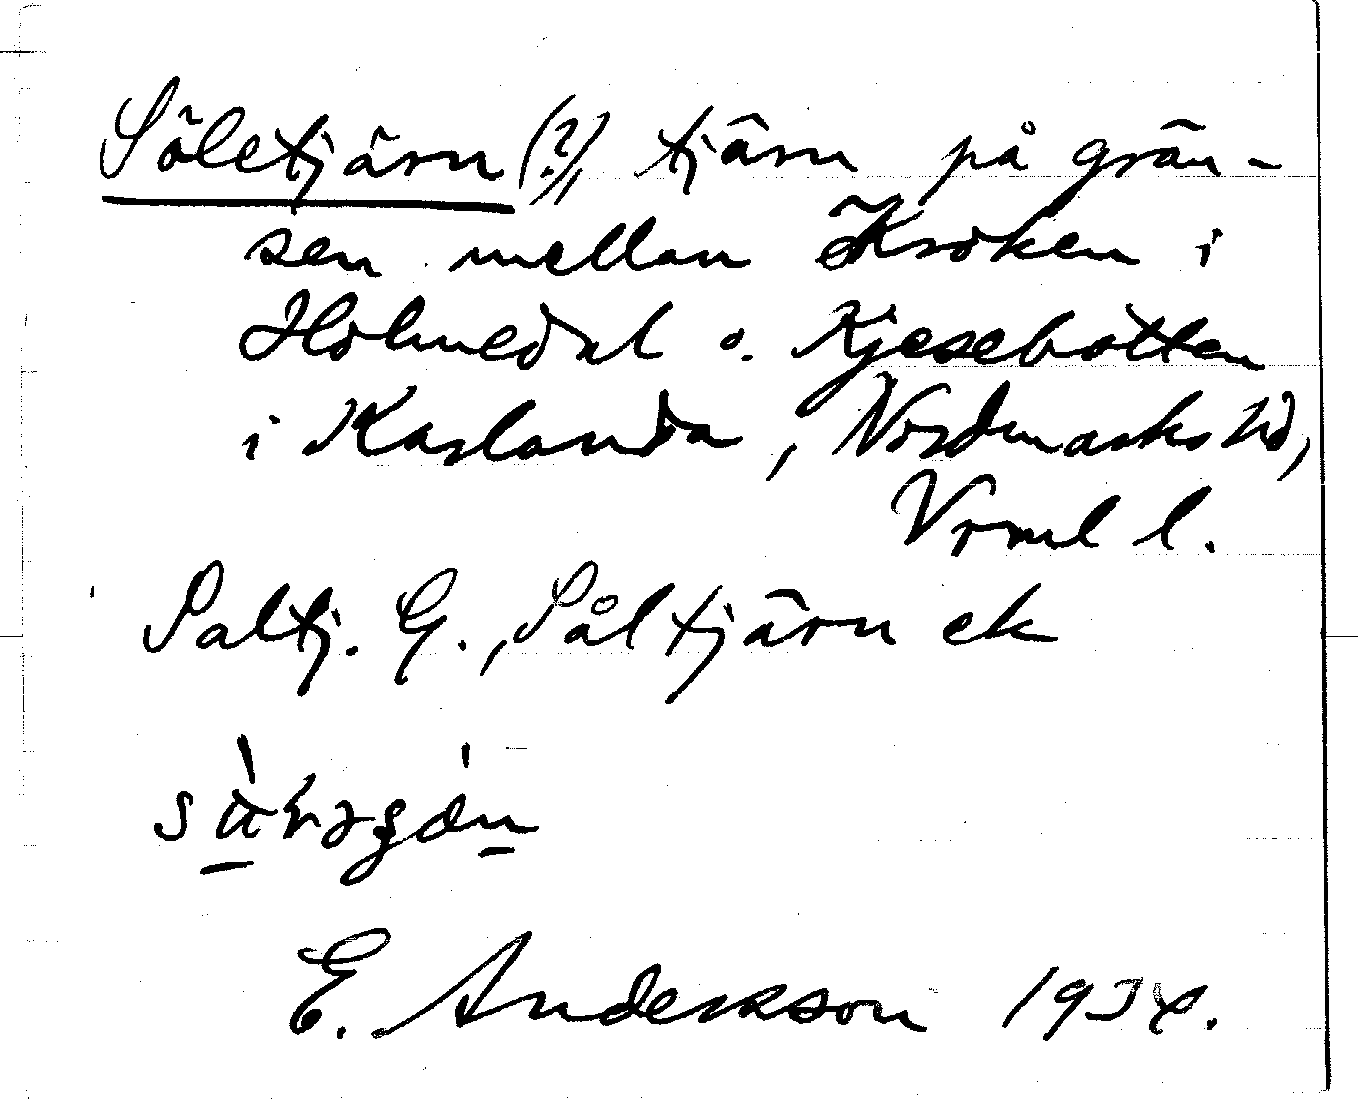 Söletjärn (?), tjärn på grän-
sen mellan Kroken i
Holmedal o. Kjesebotten
i Karlanda, Nordmarks hd,
Vrml l.
Saltj. G., Såltjärn ek
E. Andersson 1934.